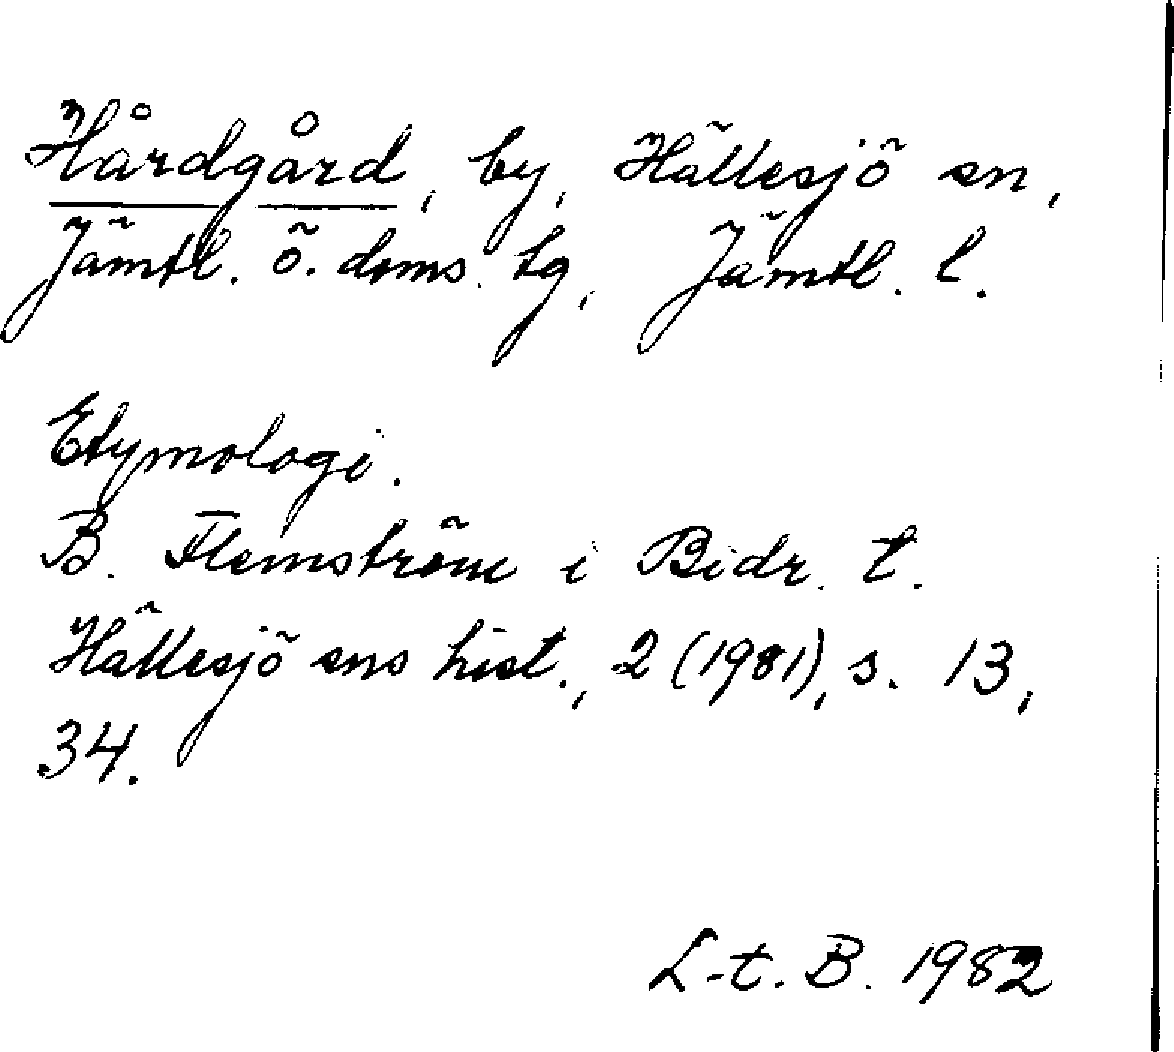 Hårdgård, by, Hällesjö sn,
Jämtl. ö. doms. tg, Jämtl. l.
Etymologi.
B. Flemström i Bidr. t.
Hällesjö sns hist., 2 (1981), s. 13,
34.
L-t. B. 1982